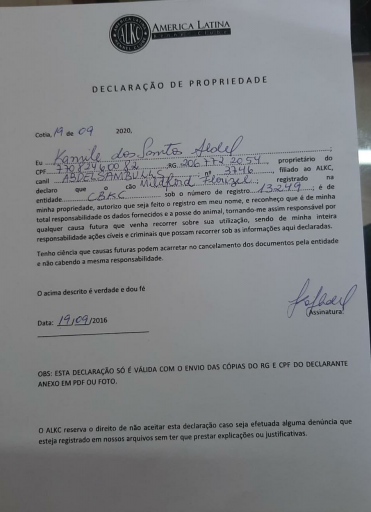 ALKC
AMERICA LATINA
KENNEL CLUB
DECLARAÇÃO DE PROPRIEDADE
Cotia, 19 de 09 2020,
Eu Kamile dos Santos Abdel
CPF 77082460082 RG 206 772 2054, proprietário do
canil ABDELSAMBULLS, nº 3746, filiado ao ALKC,
declaro que o cão Mildford Florizel, registrado na
entidade CBKC sob o número de registro 13249, é de
minha propriedade, autorizo que seja feito o registro em meu nome, e reconheço que é de minha
total responsabilidade os dados fornecidos e a posse do animal, tornando-me assim responsável por
qualquer causa futura que venha recorrer sobre sua utilização, sendo de minha inteira
responsabilidade ações cíveis e criminais que possam recorrer sob as informações aqui declaradas.
Tenho ciência que causas futuras podem acarretar no cancelamento dos documentos pela entidade
e não cabendo a mesma responsabilidade.
O acima descrito é verdade e dou fé
Assinatura:
Data: 19/09/2016
OBS: ESTA DECLARAÇÃO SÓ É VÁLIDA COM O ENVIO DAS CÓPIAS DO RG E CPF DO DECLARANTE
ANEXO EM PDF OU FOTO.
O ALKC reserva o direito de não aceitar esta declaração caso seja efetuada alguma denúncia que
esteja registrado em nossos arquivos sem ter que prestar explicações ou justificativas.